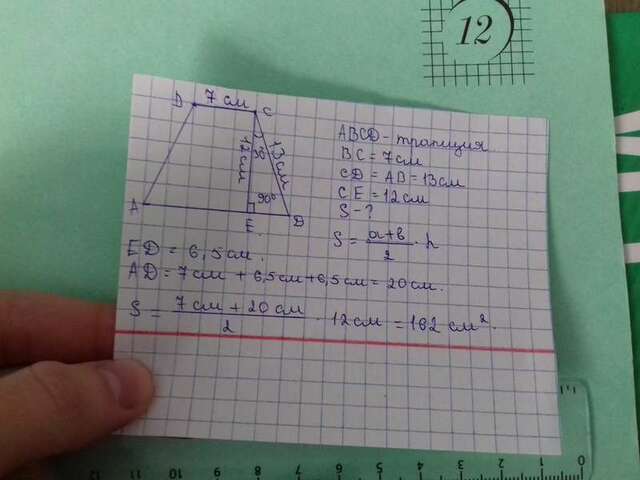 ABCD - трапеция
BC = 7 см
CD = AD = 13 см
CE = 12 см
S - ?
D 7 см C
A E B
90°
S = a+b / 2 · h
ED = 6,5 см.
AD = 7 см + 6,5 см + 6,5 см = 20 см.
S = 7 см + 20 см / 2 · 12 см = 162 см².
12
0 1 2 3 4 5 6 7 8 9 10 11 12